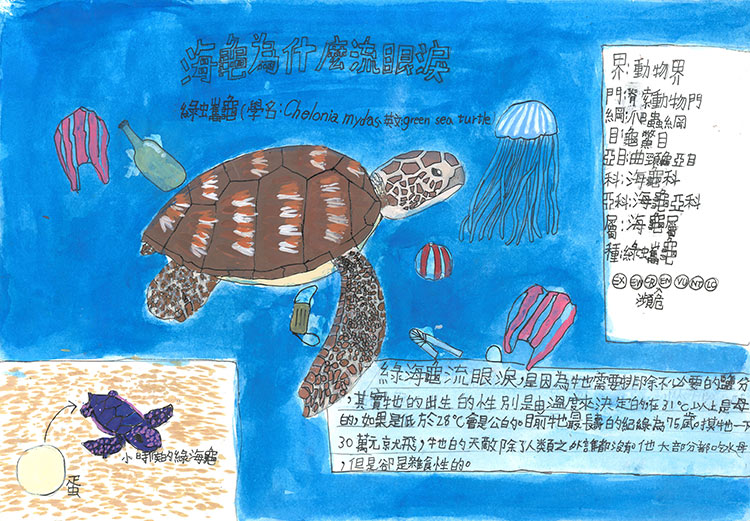 海龜為什麼流眼淚
綠蠵龜(學名:Chelonia mydas,英文:green sea turtle
界:動物界
門:脊索動物門
綱:爬蟲綱
目:龜鱉目
亞目:曲頸龜亞目
科:海龜科
亞科:海龜亞科
屬:海龜屬
種:綠蠵龜
EX EW CR EN VU NT LC
瀕危
綠海龜流眼淚,是因為牠需要排除不必要的鹽分
,其實牠的出生的性別是由溫度來決定的在31°C以上是母
的,如果是低於28°C會是公的。目前牠最長壽的紀錄為75歲。摸牠一下
30萬元就飛,牠的天敵除了人類之外誰都沒有。他大部分都吃水母
,但是卻是雜食性的。
小時候的綠海龜
蛋